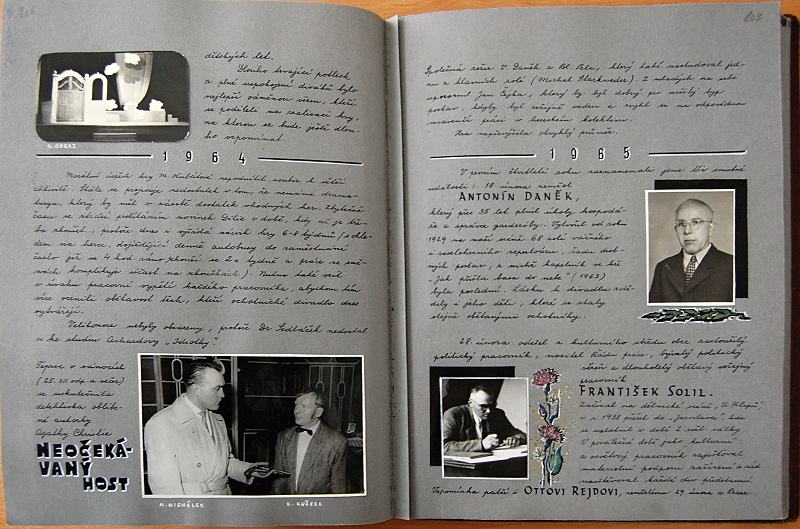 206
dětských let.
Dlouho trvající potlesk
a plné uspokojení diváků bylo
nejlepší odměnou všem, kteří
se podíleli na realizaci hry,
na kterou se bude ještě dlou-
ho vzpomínat.
4. OBRAZ
1964
Morální úspěch hry M. Kubátové nepodnítil soubor k větší
aktivitě. Stále se projevuje nedostatek v tom, že nemáme drama-
turga, který by měl v zásobě dostatek vhodných her. Zbytečně
času se ztrácí pročítáním novinek Dilie v době, kdy už je tře-
ba zkoušet, protože dnes i vyžádá nácvik hry 6-8 týdnů /s ohle-
dem na herce, dojíždějící denně autobusy do zaměstnání
často již ve 4 hod. ráno, zkouší se 2x týdně a práce na smě-
nách komplikuje účast na zkouškách/. Nutno také vzít
v úvahu pracovní vypětí každého pracovníka, abychom tím
více ocenili obětavost těch, kteří ochotnické divadlo dnes
vytvářejí.
Velikonoce nebyly obsazeny, protože Dr Sedláček nedostal
se ke studiu Achardovy „Idiotky".
Teprve o vánocích
(25. XII odp. a večer)
se uskutečnila
detektivka oblíbe-
né autorky
Agathy Christie
NEOČEKÁ-
VANÝ
HOST
M. MICHÁLEK
K. KUČERA
207
Společná režie V. Daněk a Bl. Pelc, který také nastudoval jed-
nu z hlavních rolí (Michal Starkweder). Z mladých na sebe
upozornil Jan Čepka, který by byl dobrý pro určitý typ
postav, kdyby byl režijně veden a zvykl si na odpovědnou
mravenčí práci v hereckém kolektivu.
Hra nepřevýšila obvyklý průměr.
1965
V prvním čtvrtletí roku zaznamenali jsme tři smutné
události: 18 února zemřel
ANTONÍN DANĚK,
který přes 35 let plnil úkoly hospodá-
ře a správce garderoby. Vytvořil od roku
1929 na naší scéně 68 rolí vážného
i veseloherního repertoáru, řadu dob-
ných postav, z nichž kapelník ve hře
„Jak přišla basa do nebe" (1963)
byla poslední. Lásku k divadlu zdě-
dily i jeho děti, které se staly
stejně obětavými ochotníky.
28. února odešel z kulturního středu obce zasloužilý
politický pracovník, nositel Řádu práce, bývalý politický
vězeň a dlouholetý obětavý veřejný
pracovník
FRANTIŠEK SOLIL.
Začínal na dělnické scéně „U Filipů",
v r. 1938 přišel do „Jaroslava", kde
se uplatnil v době 2. svět. války.
V poválečné době jako kulturní
a osvětový pracovník zajišťoval
materiální podporu zařízení a rád
navštěvoval každé dvě představení.
Vzpomínka patří i OTTOVI REJDOVI, zemřelému 29. února v Praze.